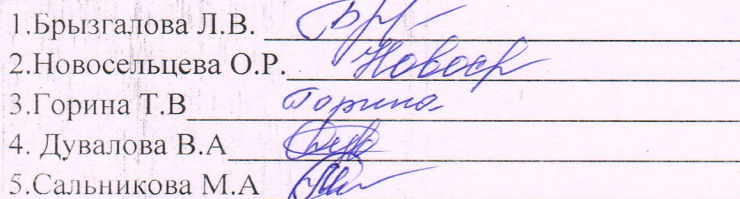 1.Брызгалова Л.В.
2.Новосельцева О.Р. Новоср
3.Горина Т.В Горина
4. Дувалова В.А
5.Сальникова М.А